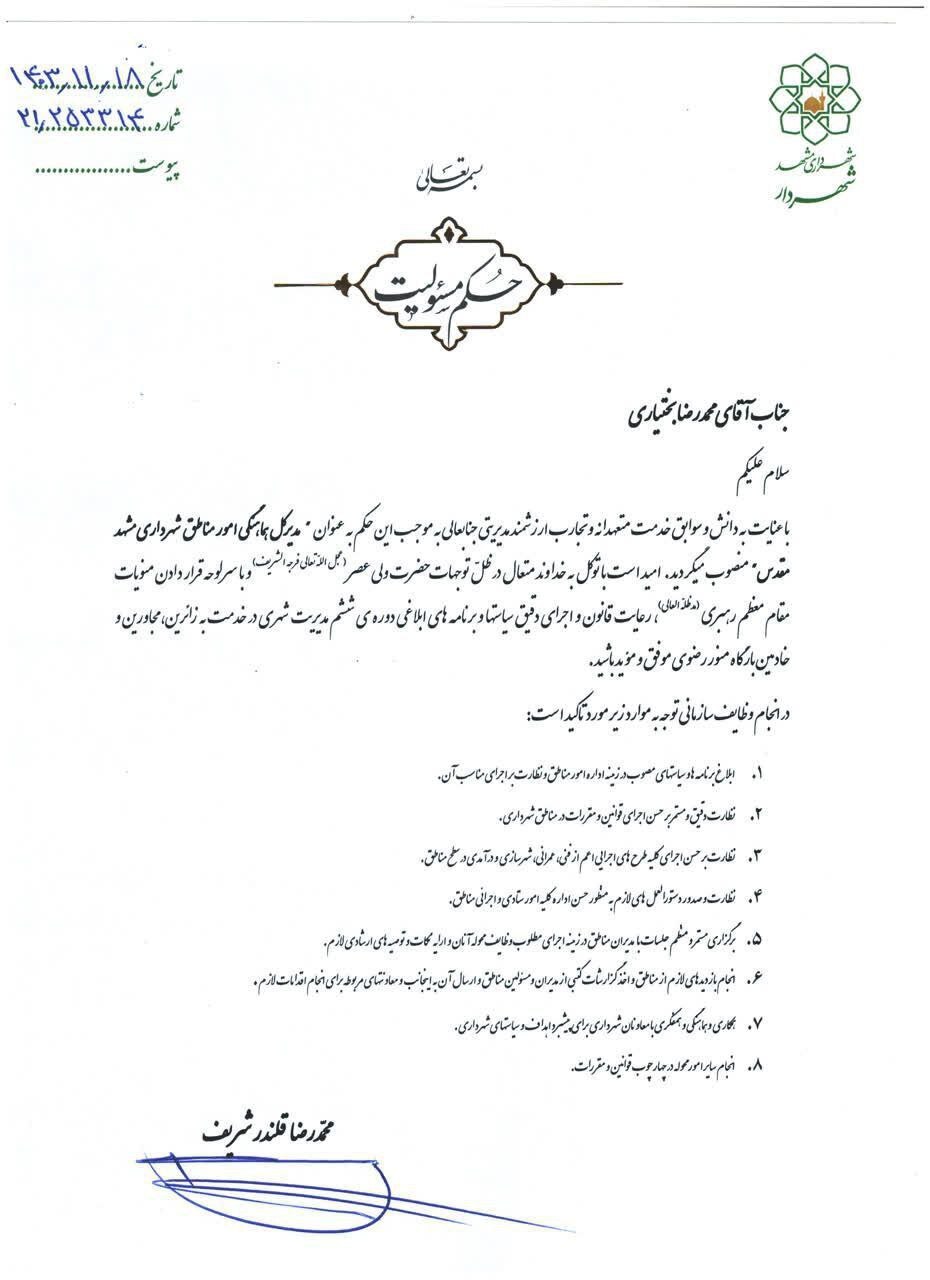 شهرداری مشهد
شهردار
تاریخ ۱۴۰۳٫۱۱٫۱۸
شماره ۲۱٫۲۵۳۳۱۴
پیوست................
بسمه تعالی
حکم مسئولیت
جناب آقای محمدرضا بختیاری
سلام علیکم
با عنایت به دانش و سوابق خدمت متعهدانه و تجارب ارزشمند مدیریتی جنابعالی به موجب این حکم به عنوان " مدیرکل هماهنگی امور مناطق شهرداری مشهد
مقدس" منصوب میگردید. امید است با توکل به خداوند متعال در ظلّ توجهات حضرت ولی عصر (عجل الله تعالی فرجه الشریف) و با سرلوحه قرار دادن منویات
مقام معظم رهبری (مدظله العالی)، رعایت قانون و اجرای دقیق سیاستها و برنامه های ابلاغی دوره ی ششم مدیریت شهری در خدمت به زائرین، مجاورین و
خادمین بارگاه منور رضوی موفق و مؤید باشید.
در انجام وظایف سازمانی توجه به موارد زیر مورد تاکید است:
۱. ابلاغ برنامه ها و سیاستهای مصوب در زمینه اداره امور مناطق و نظارت بر اجرای مناسب آن.
۲. نظارت دقیق و مستمر بر حسن اجرای قوانین و مقررات در مناطق شهرداری.
۳. نظارت بر حسن اجرای کلیه طرح های اجرایی اعم از فنی، عمرانی، شهرسازی و درآمدی در سطح مناطق.
۴. نظارت و صدور دستورالعمل های لازم به منظور حسن اداره کلیه امور ستادی و اجرائی مناطق.
۵. برگزاری مستمر و منظم جلسات با مدیران مناطق در زمینه اجرای مطلوب وظایف محوله آنان و ارایه نکات و توصیه های ارشادی لازم.
۶. انجام بازدیدهای لازم از مناطق و اخذ گزارشات کتبی از مدیران و مسئولین مناطق و ارسال آن به اینجانب و معاونتهای مربوطه برای انجام اقدامات لازم.
۷. همکاری و هماهنگی و همفکری با معاونان شهرداری برای پیشبرد اهداف و سیاستهای شهرداری.
۸. انجام سایر امور محوله در چهارچوب قوانین و مقررات.
محمدرضا قلندر شریف